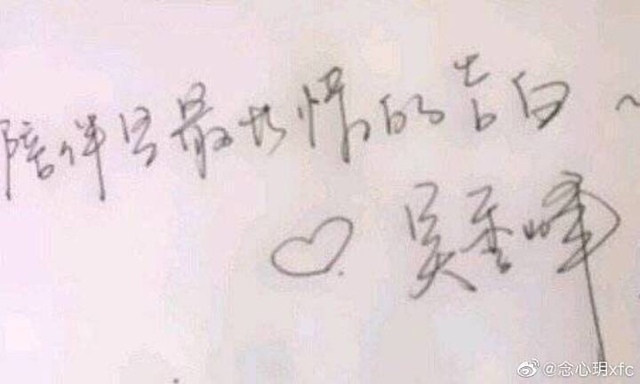 陪伴是最长情的告白～
♡ 吴秀峰
@念心玥xfc